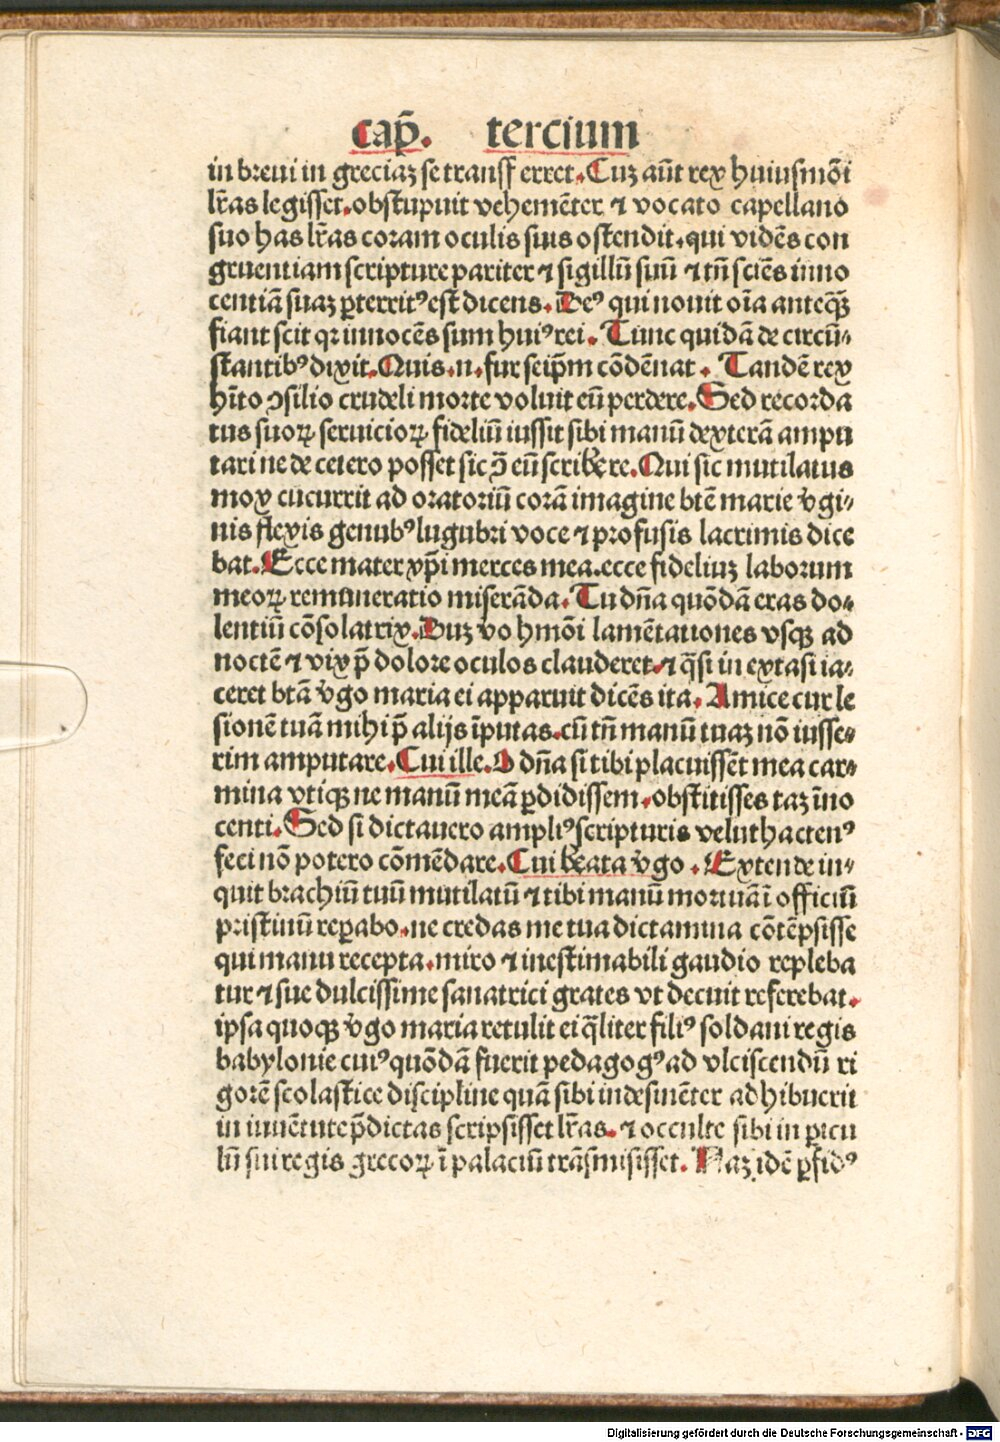 cap̄. tercium
in breui in greciaꝫ se transf erret. Cuꝫ aūt rex huiusmōi
lr̄as legisset. obstupuit vehemēter ⁊ vocato capellano
suo has lr̄as coram oculis suis ostendit. qui vidēs con
gruentiam scripture pariter ⁊ sigillū suū ⁊ tn̄ sciēs inno
centiā suaꝫ ꝑterritꝰ est dicens. Deꝰ qui nouit oīa anteqꝫ̄
fiant scit qꝛ innocēs sum huiꝰ rei. Tunc quidā de circū⸗
stantibꝰ dixit. Quis .n. fur seip̄m cōdēnat. Tandē rex
hīto ↄsilio crudeli morte voluit eū perdere. Sed recorda
tus suoꝝ seruicioꝝ fideliū iussit sibi manū dexterā ampu
tari ne de cetero posset sic ↄ̄ eū scribere. Qui sic mutilatus
mox cucurrit ad oratoriū corā imagine btē marie v̄gi⸗
nis flexis genubꝰ lugubri voce ⁊ profusis lacrimis dice
bat. Ecce mater xp̄i merces mea. ecce fideliuꝫ laborum
meoꝝ remuneratio miserāda. Tu dn̄a quōdā eras do⸗
lentiū cōsolatrix. Duꝫ vo hmōi lamētationes vsqꝫ ad
noctē ⁊ vix p̄ dolore oculos clauderet. ⁊ q̄si in extasi ia⸗
ceret btā v̄go maria ei apparuit dicēs ita. Amice cur le
sionē tuā mihi p̄ alijs īputas. cū tn̄ manū tuaꝫ nō iusse⸗
rim amputare. Cui ille. O dn̄a si tibi placuissēt mea car⸗
mina vtiqꝫ ne manū meā ꝑdidissem. obstitisses taꝫ īno
centi. Sed si dictauero ampliꝰ scripturis velut hactenꝰ
feci nō potero cōmēdare. Cui beata v̄go. Extende in⸗
quit brachiū tuū mutilatū ⁊ tibi manū mortuā ī officiū
pristinū reꝑabo. ne credas me tua dictamina cōtēpsisse
qui manu recepta. miro ⁊ inestimabili gaudio repleba
tur ⁊ sue dulcissime sanatrici grates vt decuit referebat.
ipsa quoqꝫ v̄go maria retulit ei q̄liter filiꝰ soldani regis
babylonie cuiꝰ quōdā fuerit pedagogꝰ ad vlciscendū ri
gorē scolastice discipline quā sibi indesinēter adhibuerit
in iuuētute p̄dictas scripsisset lr̄as. ⁊ occulte sibi in ꝑicu
lū sui regis grecoꝝ ī palaciū trāsmisisset. Naꝫ idē ꝑfidꝰ
Digitalisierung gefördert durch die Deutsche Forschungsgemeinschaft - DFG